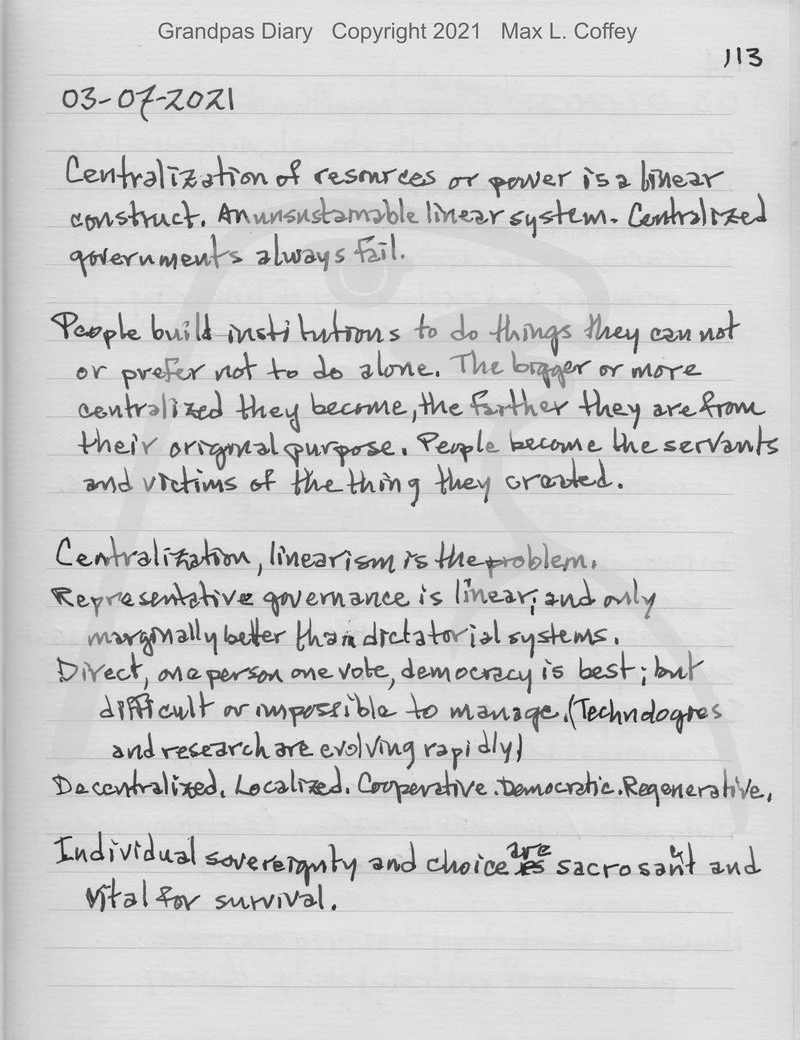 Grandpas Diary Copyright 2021 Max L. Coffey
113
03-07-2021
Centralization of resources or power is a linear
construct. An unsustainable linear system. Centralized
governments always fail.
People build institutions to do things they can not
or prefer not to do alone. The bigger or more
centralized they become, the farther they are from
their original purpose. People become the servants
and victims of the thing they created.
Centralization, linearism is the problem.
Representative governance is linear; and only
marginally better than dictatorial systems.
Direct, one person one vote, democracy is best; but
difficult or impossible to manage. (Technologies
and research are evolving rapidly)
Decentralized. Localized. Cooperative. Democratic. Regenerative.
Individual sovereignty and choice are sacrosanct and
vital for survival.